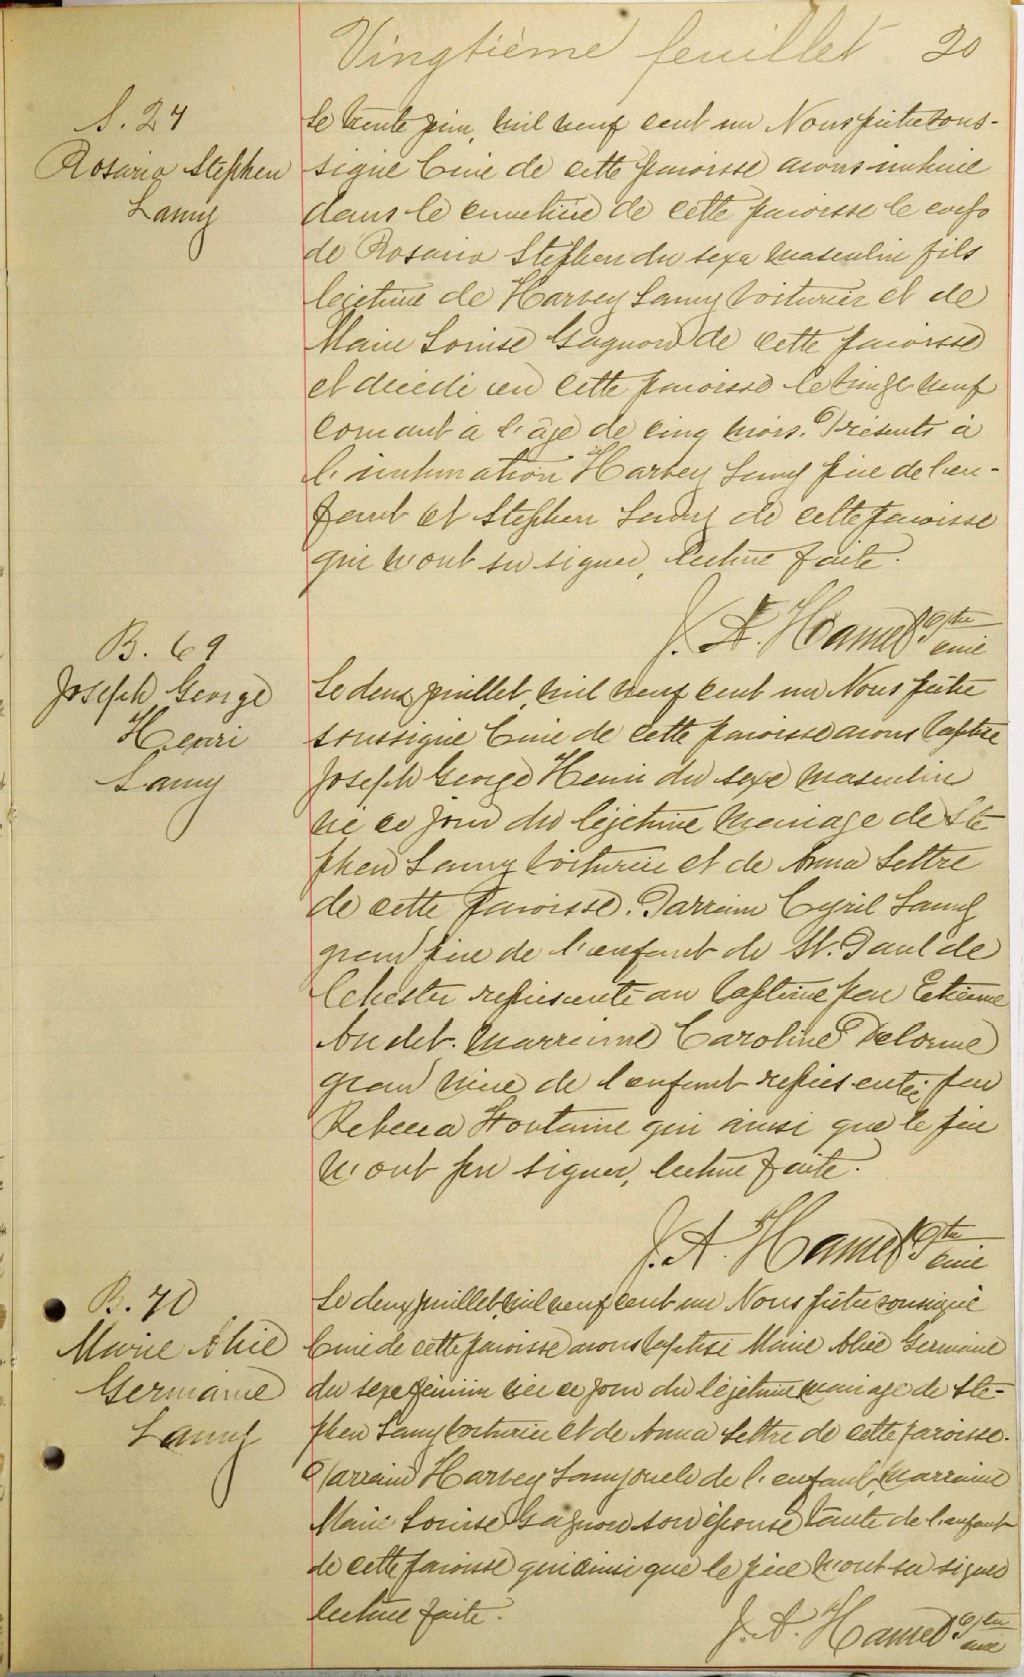 Vingtième feuillet 20
S. 27
Rosario Stephen
Lamy
Le trente juin, mil neuf cent un Nous prêtre sous-
signé Curé de cette paroisse avons inhumé
dans le cimetière de cette paroisse le corps
de Rosario Stephen du sexe masculin fils
légitime de Harvey Lamy voiturier et de
Marie Louise Gagnon de cette paroisse
et décédé en cette paroisse le vingt neuf
courant à l'âge de cinq mois. Présents à
l'inhumation Harvey Lamy père de l'en-
fant et Stephen Lamy de cette paroisse
qui n'ont su signer, lecture faite.
J. A. Hamel Ptre
curé
B. 69
Joseph George
Henri
Lamy
Le deux juillet, mil neuf cent un Nous prêtre
soussigné Curé de cette paroisse avons baptisé
Joseph George Henri du sexe masculin
né ce jour du légitime mariage de Ste
phen Lamy voiturier et de Anna Lettre
de cette paroisse. Parrain Cyril Lamy
grand père de l'enfant de St. Paul de
Chester représenté au baptême par Etienne
Audet. Marraine Caroline Delorme
grand mère de l'enfant représentée par
Rebecca Fontaine qui ainsi que le père
n'ont pu signer, lecture faite.
J. A. Hamel Ptre
curé
B. 70
Marie Alice
Germaine
Lamy
Le deux juillet mil neuf cent un Nous prêtre soussigné
Curé de cette paroisse avons baptisé Marie Alice Germaine
du sexe féminin née ce jour du légitime mariage de Ste-
phen Lamy voiturier et de Anna Lettre de cette paroisse.
Parrain Harvey Lamy oncle de l'enfant, Marraine
Marie Louise Gagnon son épouse tante de l'enfant
de cette paroisse qui ainsi que le père n'ont su signer
lecture faite.
J. A. Hamel Ptre
curé